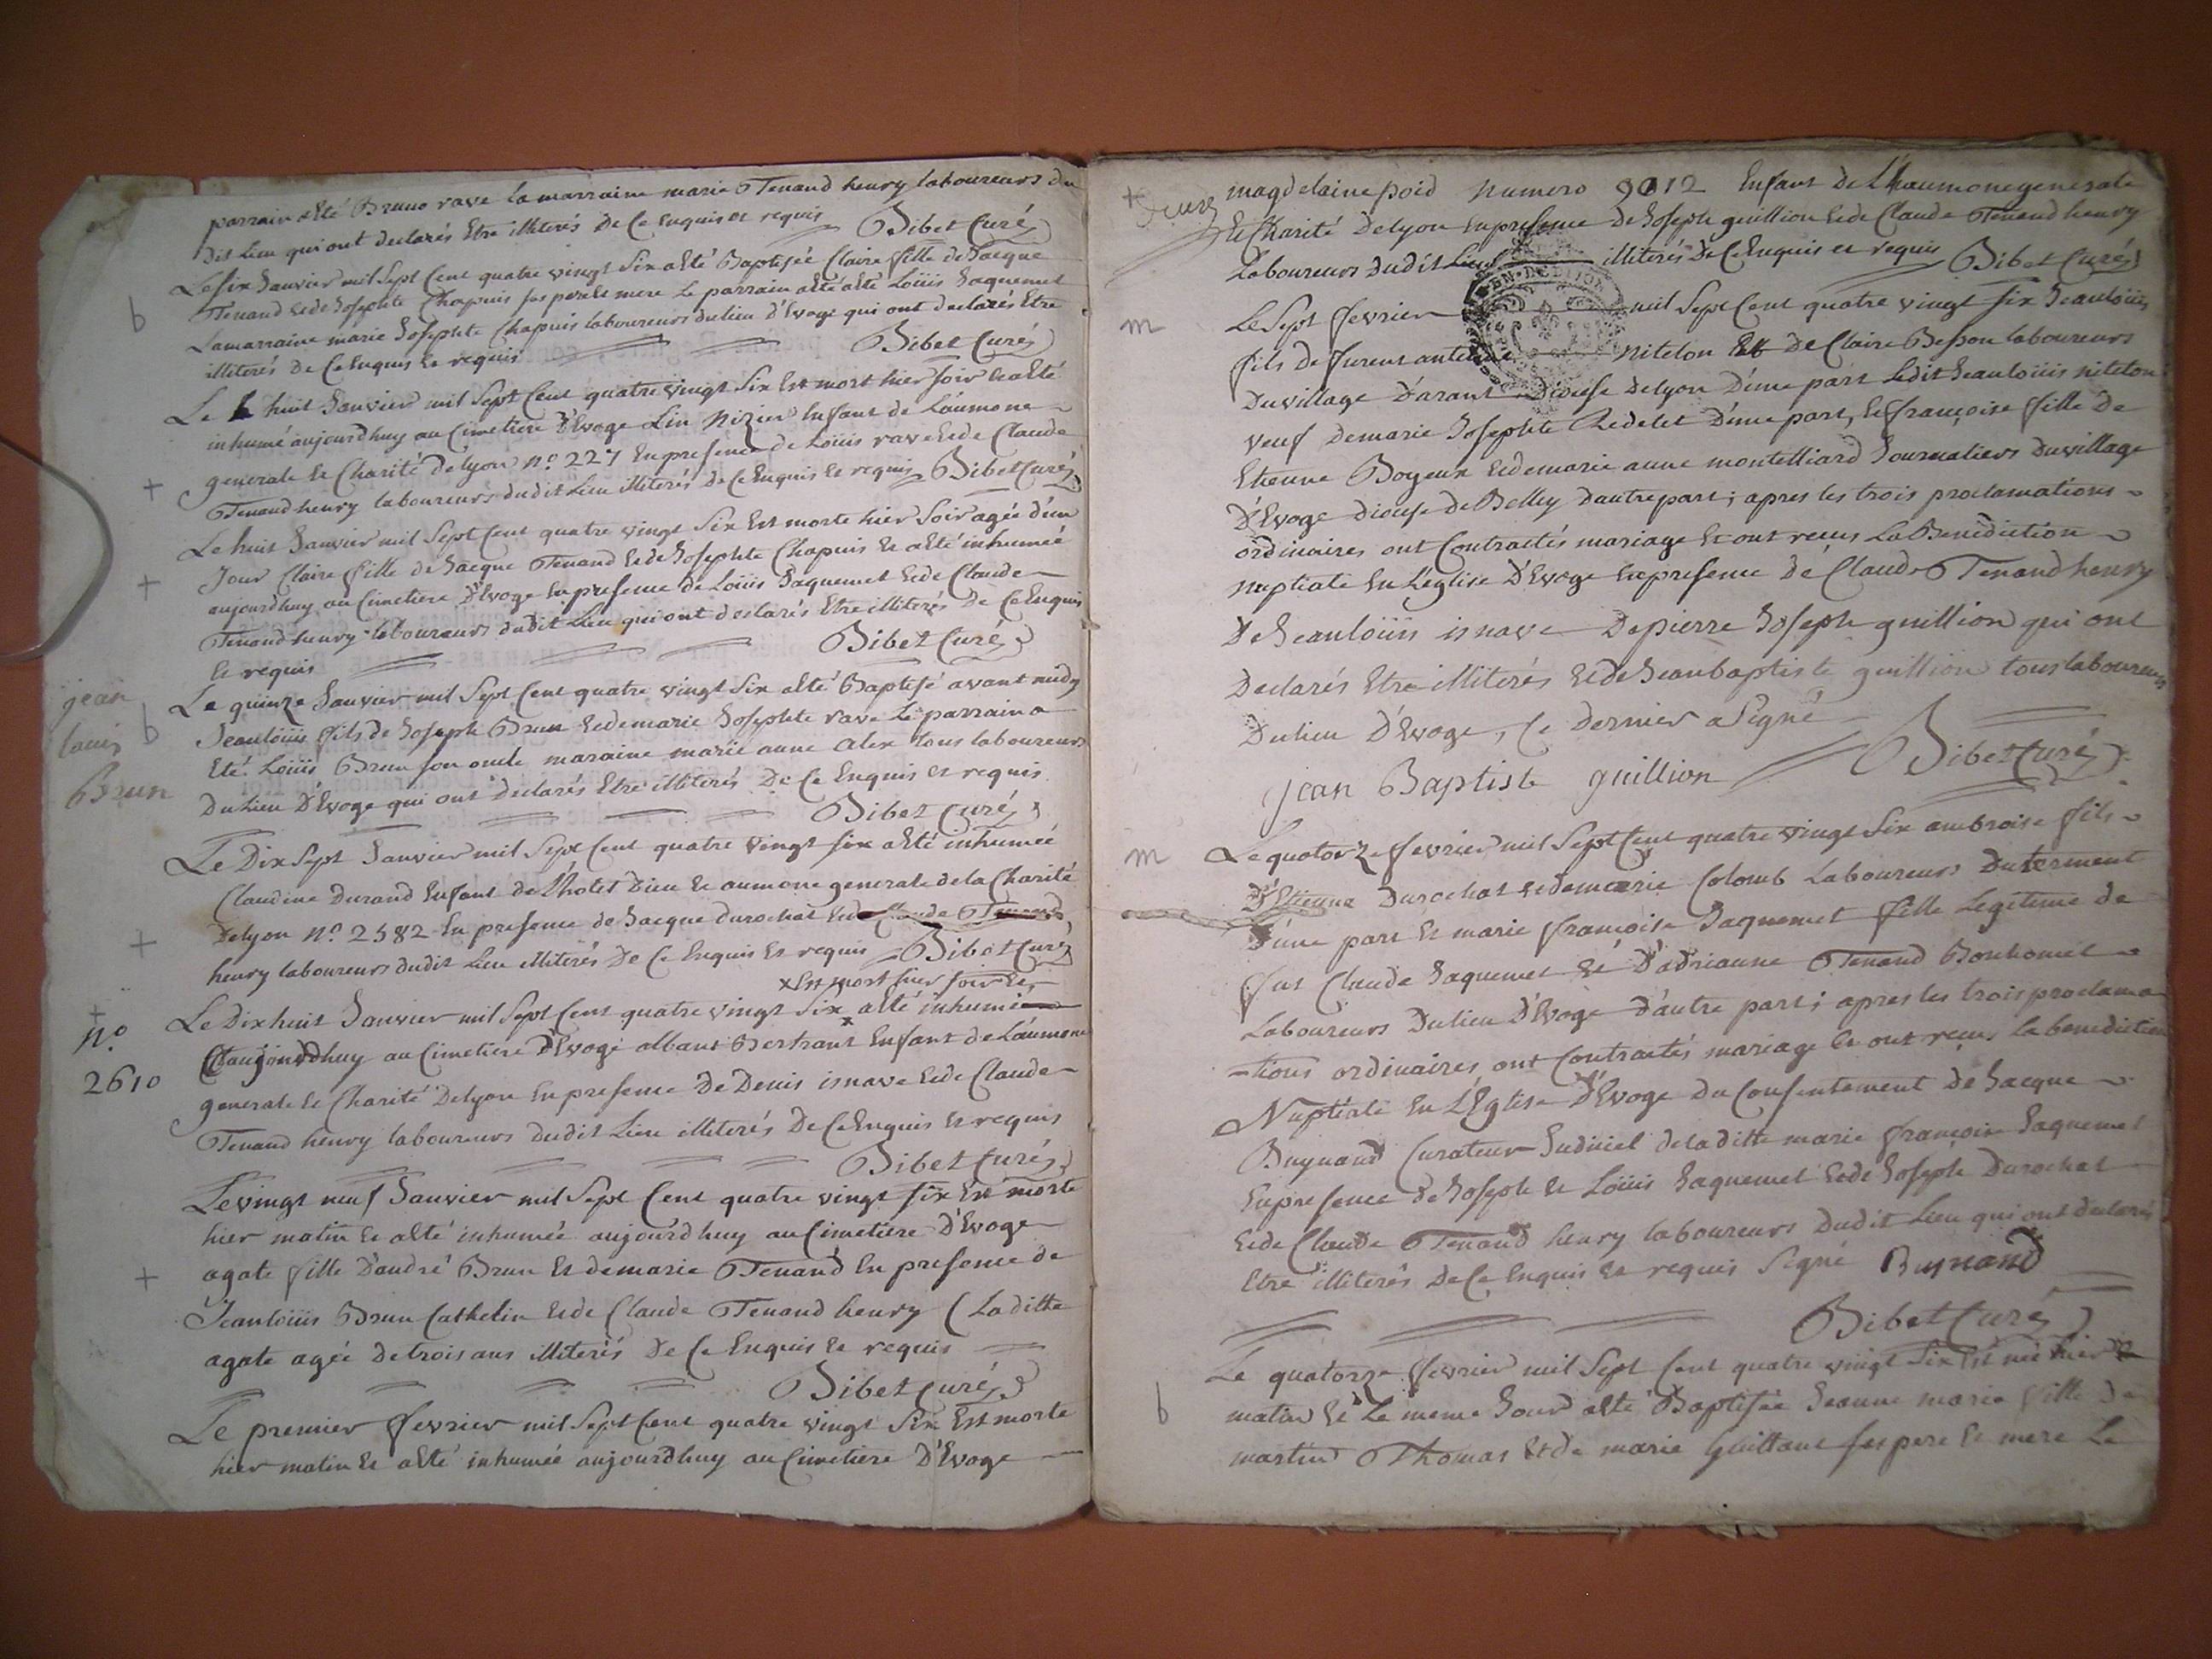 parrain a Eté Bruno rave La marraine marie Tenand henry laboureurs du
dit Lieu qui ont declarés Etre illiterés De Ce Enquis et requis Bibet Curé
Le six Janvier mil Sept Cent quatre vingt Six a Eté Baptisée Claire fille de Jacque
b
Tenand et de Josephte Chapuis ses pere et mere Le parrain a Eté Loüis Jaquemet
La marraine marie Josephte Chapuis laboureurs du lieu d'Evoge qui ont declarés Etre
illiterés De Ce Enquis Et requis Bibet Curé
Le huit Janvier mil Sept Cent quatre vingt Six Est mort hier soir Et a Eté
inhumé aujourdhuy au Cimetiere D'Evoge Lin Nizier Enfant de L'aumone
generale Et Charité de lyon n.° 227 En presence de Loüis rave Et de Claude
+
Tenand henry laboureurs dudit Lieu illiterés De Ce Enquis Et requis Bibet Curé
Le huit Janvier mil Sept Cent quatre vingt Six Est morte hier Soir agée d'un
+
Jour Claire fille de Jacque Tenand Et de Josephte Chapuis Et a Eté inhumée
aujourdhuy au Cimetiere D'Evoge En presence de Loüis Jaquemet Et de Claude
Tenand henry laboureurs dudit Lieu qui ont declarés Etre illiterés De Ce Enquis
Et requis Bibet Curé
jean
louis
Brun
b
Le quinze Janvier mil Sept Cent quatre vingt Six a Eté Baptisé avant midy
Jean loüis fils de Joseph Brun Et de marie Josephte rave Le parrain a
Eté Loüis Brun son oncle maraine marie anne alex tous laboureurs
Du Lieu D'Evoge qui ont Declarés Etre illiterés De Ce Enquis et requis
Bibet Curé
Le Dix Sept Janvier mil Sept Cent quatre vingt six a Eté inhumée
Claudine Durand Enfant de l'hotel Dieu Et aumone generale de la Charité
De lyon n.° 2582 En presence de Jacque Durochat Et de Claude Tenand
+
henry laboureurs dudit Lieu illiterés De Ce Enquis Et requis Bibet Curé
x Est mort hier soir Et
+
n.°
2610
Le Dix huit Janvier mil Sept Cent quatre vingt Six x a Eté inhumé
aujourdhuy au Cimetiere D'Evoge albant Bertrant Enfant de L'aumone
generale Et Charité De lyon En presence De Denis isnave Et de Claude
Tenand henry laboureurs dudit Lieu illiterés De Ce Enquis Et requis
Bibet Curé
Le vingt neuf Janvier mil Sept Cent quatre vingt six Est morte
hier matin Et a Eté inhumée aujourdhuy au Cimetiere D'Evoge
+
agate fille D'andré Brun Et de marie Tenand En presence de
Jean loüis Brun Cathelin Et de Claude Tenand henry (La ditte
agate agée de trois ans illiterés De Ce Enquis Et requis
Bibet Curé
Le premier fevrier mil Sept Cent quatre vingt Six Est morte
hier matin Et a Eté inhumée aujourdhuy au Cimetiere D'Evoge
+
magdelaine poid numero 9012 Enfant de L'haumone generale
Et Charité De lyon En presence De Joseph guillion Et de Claude Tenand henry
Laboureurs dudit Lieu illiterés De Ce Enquis et requis Bibet Curé
m
Le Sept fevrier mil Sept Cent quatre vingt six Jean loüis
fils de fureut nitelon Et De Claire Besson laboureurs
Du village D'arant Diocese De lyon D'une part Ledit Jean loüis nitelon
veuf De marie Josephte Redelet D'une part, Et françoise fille De
Etienne Boyeux Et de marie anne montelliard Journaliers Du village
D'Evoge diocese de Belley D'autre part ; apres les trois proclamations
ordinaires ont Contractés mariage Et ont reçus La Benediction
nuptiale En L'eglise D'Evoge En presence De Claude Tenand henry
De Jean loüis isnave De pierre Joseph guillion qui ont
Declarés Etre illiterés Et de Jean baptiste guillion tous laboureurs
Du lieu D'Evoge, Ce Dernier a Signé
jean Baptiste guillion Bibet Curé
m
Le quatorze fevrier mil Sept Cent quatre vingt Six ambroise fils
D'Etienne Durochat et de marie Colomb Laboureurs Du terment
D'une part Et marie françoise Jaquemet fille Legitime de
fut Claude Jaquemet Et D'adrianne Tenand Bonhomet
Laboureurs Du lieu D'Evoge D'autre part ; apres les trois proclama
-tions ordinaires, ont Contractés mariage Et ont reçus la benediction
Nuptiale En L'Eglise D'Evoge Du Consentement De Jacque
Buynand Curateur Judiciel de la ditte marie françoise Jaquemet
En presence De Joseph Et Loüis Jaquemet Et de Joseph Durochat
Et de Claude Tenand henry laboureurs Dudit Lieu qui ont declarés
Etre illiterés De Ce Enquis Et requis Signé Buynand
Bibet Curé
b
Le quatorze fevrier mil Sept Cent quatre vingt Six Est née hier
matin Et Le meme Jour a Eté Baptisée Jeanne marie fille De
martin Thomas Et de marie Guillaut ses pere Et mere Le